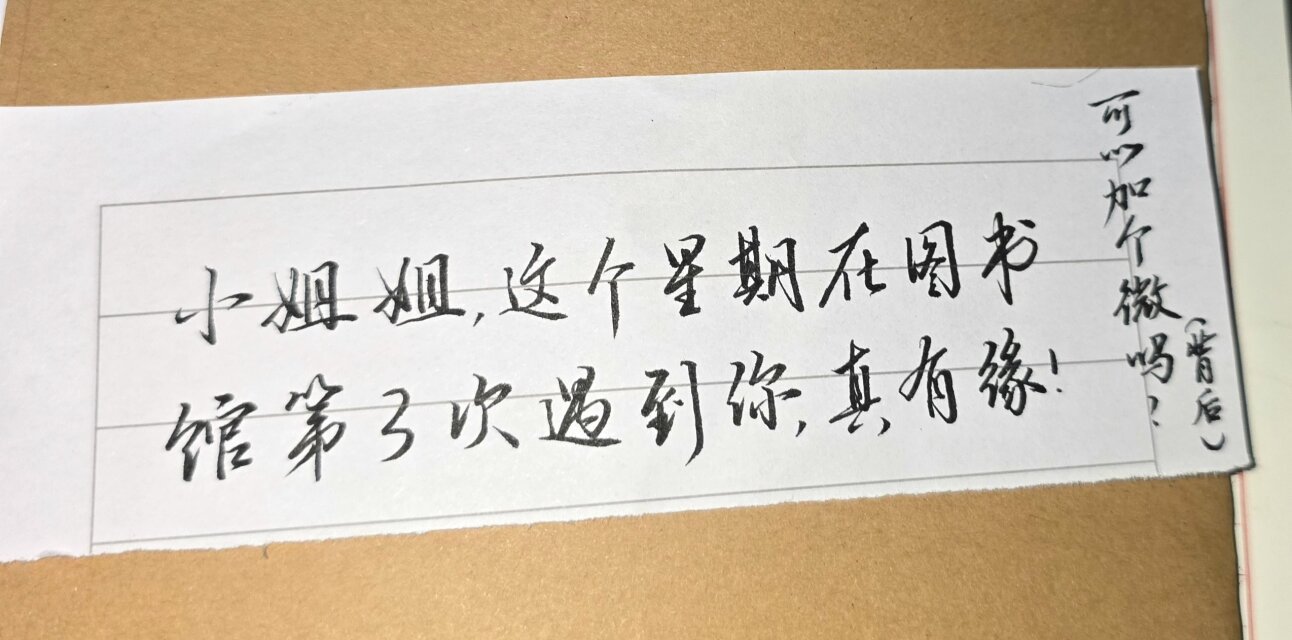 小姐姐,这个星期在图书
馆第3次遇到你,真有缘!
可以加个微吗?
(背后)